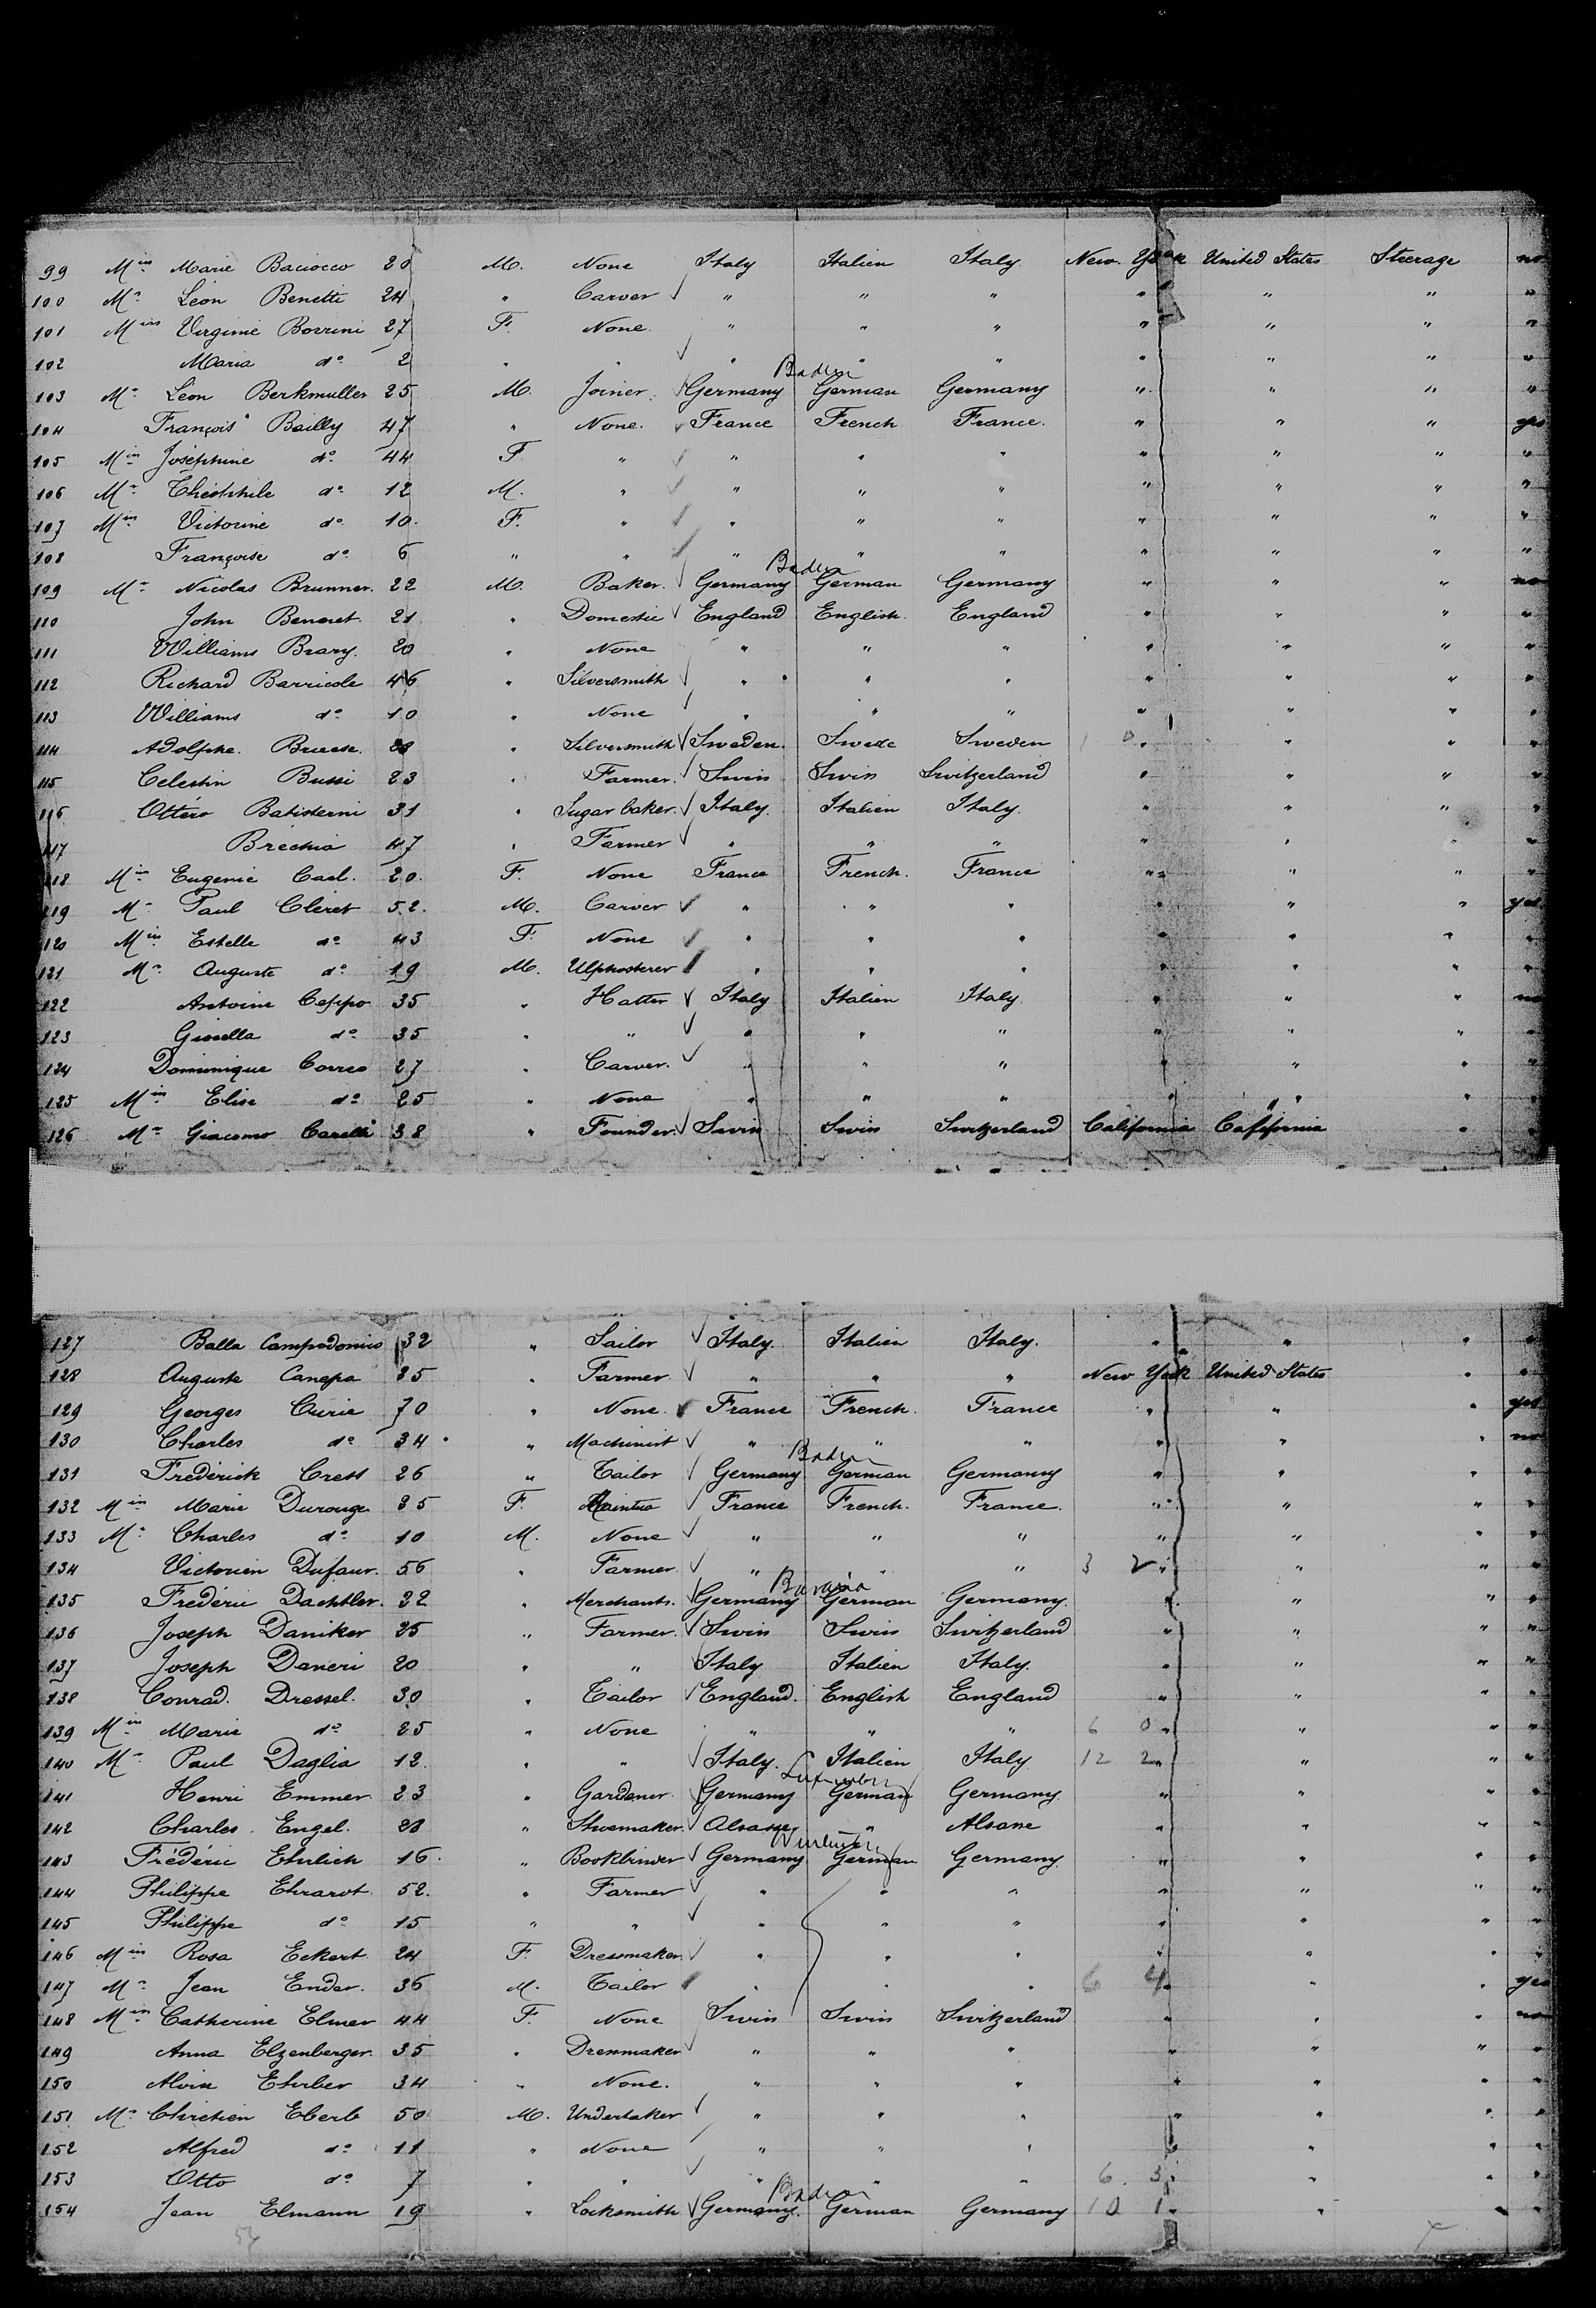 99 Min Marie Baciocco 20 M. None Italy Italien Italy. New York United States Steerage no
100 Mr Léon Benetti 24 " Carver " " " " " " "
101 Min Virginie Borrini 27 F. None. " " " " " " "
102 Maria do 2 " " " " " " " " "
Baden
103 Mr Léon Berkmuller 25 M. Joiner. Germany German Germany " " " "
104 François Bailly 47 " None. France French France. " " " yes
105 Min Joséphine do 44 F. " " " " " " " "
106 Mr Théophile do 12 M. " " " " " " " "
107 Min Victorine do 10. F. " " " " " " " "
108 Françoise do 6 " " " " " " " " "
Baden
109 Mr Nicolas Brunner. 22 M. Baker. Germany German Germany " " " no
110 John Beneret. 21 " Domestic England English England " " " "
111 Williams Brary. 20 " None " " " " " " "
112 Richard Barricole 46 " Silversmith " " " " " " "
113 Williams do 10 " None " " " " " " "
114 Adolphe. Bruese. 28 " Silversmith Sweden. Swede Sweden 1 0 " " " "
115 Celestin Bussi 23 " Farmer. Swiss Swiss Switzerland " " " "
116 Ottéro Batisterni 31 " Sugar baker. Italy. Italien Italy. " " " "
117 Bréchia 47 " Farmer " " " " " " "
118 Min Eugenie Cael. 20. F. None France French. France " " " "
119 Mr Paul Cléret 52. M. Carver " " " " " " yes
120 Min Estelle do 43 F. None " " " " " " "
121 Mr Auguste do 19 M. Ulphosterer " " " " " " "
122 Antoine Ceppo 35 " Hatter Italy Italien Italy " " " no
123 Gisella do 35 " " " " " " " " "
124 Dominique Correo 27 " Carver. " " " " " " "
125 Min Elise do 25 " None " " " " " " "
126 Mr Giacomo Carelli 38 " Founder. Swiss Swiss Switzerland California California " "
127 Balla Campodonico 32 " Sailor Italy. Italien Italy. " " " "
128 Auguste Canepa 35 " Farmer. " " " New York United States " "
129 Georges Curie 70 " None. France French. France " " " yes
130 Charles do 34 " Machinist " " " " " " no
Baden
131 Frédérick Cress 26 " Tailor Germany German Germany " " " "
132 Min Marie Durouge 35 F. France French. France. " " " "
133 Mr Charles do 10 M. None " " " " " " "
134 Victorien Dufaur. 56 " Farmer " " " 3 2 " " " "
Bavaria
135 Frédéric Dachtler. 22 " Merchants. Germany German Germany. " " " "
136 Joseph Daniker 25 " Farmer. Swiss Swiss Switzerland " " " "
137 Joseph Daneri 20 " " Italy Italien Italy. " " " "
138 Conrad. Dressel. 30 " Tailor England. English England " " " "
139 Min Marie do 25 " None " " " 6 0 " " " "
140 Mr Paul Daglia 12. " " Italy. Italien Italy 12 2 " " " "
141 Henri Emmer 23 " Gardener. Germany German Germany " " " "
142 Charles Engel. 28 " Shoemaker. Alsase " Alsase " " " "
143 Frédéric Ehrlich 16. " Bookbinder Germany German Germany. " " " "
144 Philippe Ehrardt 52. " Farmer " " " " " " "
145 Philippe do 15 " " " " " " " " "
146 Min Rosa Eckert 24 F. Dressmaker. " " " " " " "
147 Mr Jean Ender. 36 M. Tailor " " " 6 4 " " " yes
148 Min Catherine Elmer 44 F. None Swiss Swiss Switzerland " " " no
149 Anna Elzenberger. 35 " Dressmaker " " " " " " "
150 Alvise Eherber 34 " None. " " " " " " "
151 Mr Chrétien Eberb 50 M. Undertaker " " " " " " "
152 Alfred do 11 " None " " " " " " "
153 Otto do 7 " " " " " 6. 3 " " " "
Baden
154 Jean Elmann 19 " Locksmith Germany. German Germany 10 1 " " " "